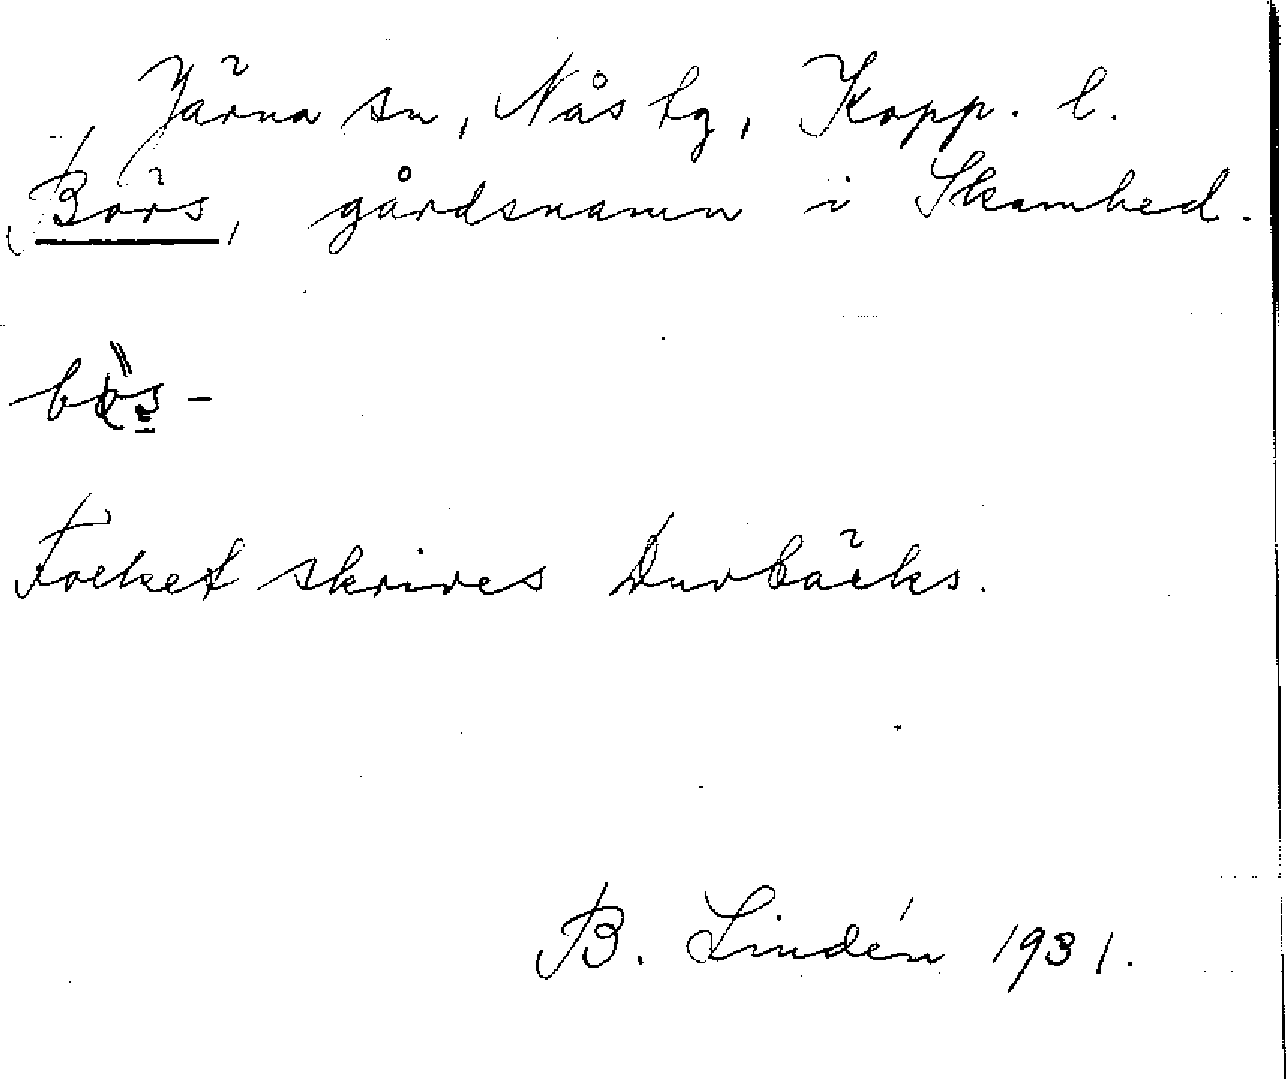 Järna sn, Nås tg, Kopp. l.
Börs, gårdsnamn i Skamhed.
Folket skrives Durbäcks.
B. Lindén 1931.